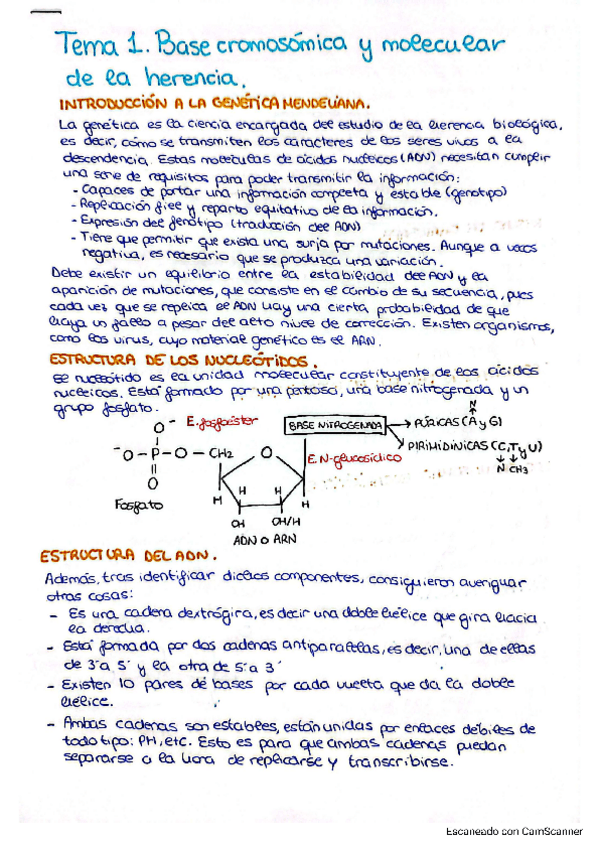 Tema 1. Base cromosómica y molecular
de la herencia.
INTRODUCCIÓN A LA GENÉTICA MENDELIANA.
La genética es la ciencia encargada del estudio de la herencia biológica,
es decir, cómo se transmiten los caracteres de los seres vivos a la
descendencia. Estas moléculas de ácidos nucleicos (ADN) necesitan cumplir
una serie de requisitos para poder transmitir la información:
- Capaces de portar una información completa y estable (genotipo)
- Replicación fiel y reparto equitativo de la información.
- Expresión del fenotipo (traducción del ADN)
- Tiene que permitir que exista una surja por mutaciones. Aunque a veces
negativa, es necesario que se produzca una variación.
Debe existir un equilibrio entre la estabilidad del ADN y la
aparición de mutaciones, que consiste en el cambio de su secuencia, pues
cada vez que se replica el ADN hay una cierta probabilidad de que
haya un fallo a pesar del alto nivel de corrección. Existen organismos,
como los virus, cuyo material genético es el ARN.
ESTRUCTURA DE LOS NUCLEÓTIDOS.
El nucleótido es la unidad molecular constituyente de los ácidos
nucleicos. Está formado por una pentosa, una base nitrogenada y un
grupo fosfato.
O⁻ E.fosfoéster BASE NITROGENADA → PÚRICAS (A y G) N
⁻O-P-O-CH2 O E.N-glucosídico → PIRIMIDÍNICAS (C,T y U)
O N CH3
Fosfato H H H H
OH OH/H
ADN o ARN
ESTRUCTURA DEL ADN.
Además, tras identificar dichos componentes, consiguieron averiguar
otras cosas:
- Es una cadena dextrógira, es decir una doble hélice que gira hacia
la derecha.
- Está formada por dos cadenas antiparalelas, es decir, una de ellas
de 3' a 5' y la otra de 5' a 3'
- Existen 10 pares de bases por cada vuelta que da la doble
hélice.
- Ambas cadenas son estables, están unidas por enlaces débiles de
todo tipo: PH, etc. Esto es para que ambas cadenas puedan
separarse a la hora de replicarse y transcribirse.
Escaneado con CamScanner